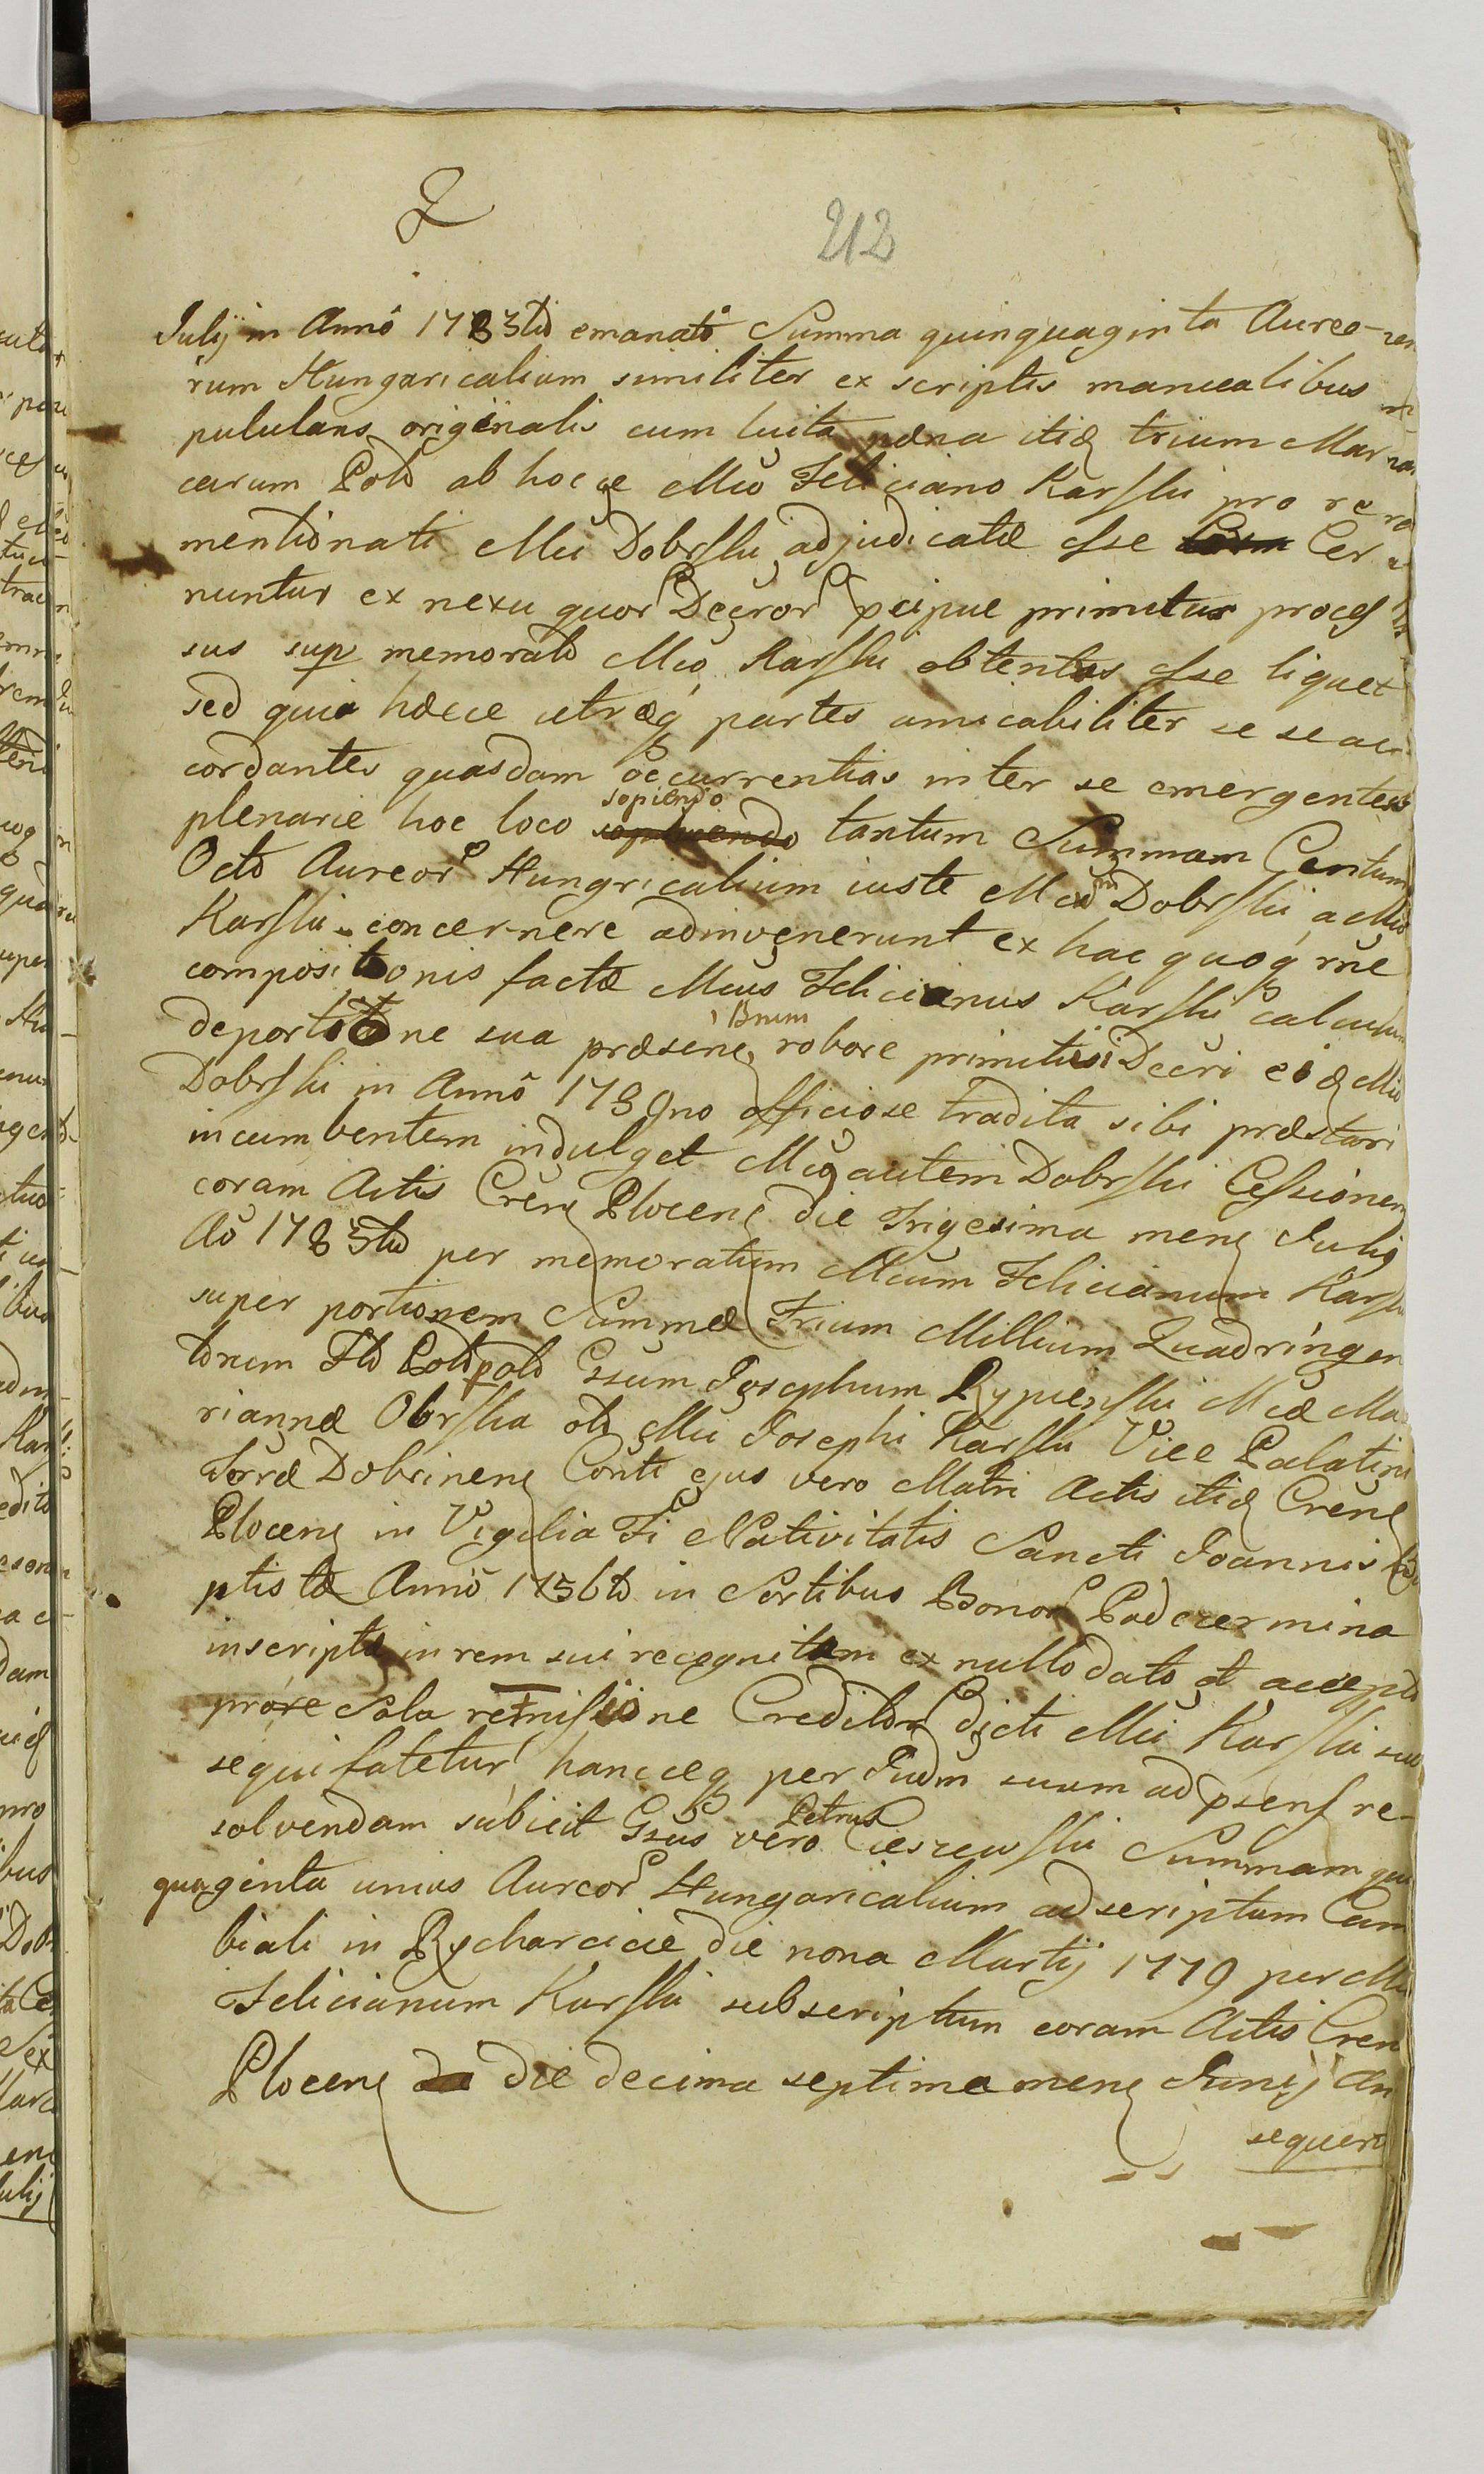 2
212
Julij in Annô 1783tio emanatô Summa quinquaginta Aureo-
rum Hungaricalium similiter ex scriptis manualibus
pululans originalis cum luita pæna itid trium Mar
carum Pold ab hocce Mco Feliciano Karski pro re
mentionati Mci Dobrski adjudicatæ esse Cer
nuntur ex nexu quor Decror pcipue primitus proces
sus sup memorato Mco Karski obtentos esse liquet
sed quia hæcce utræq partes amicabiliter se se ac
cordantes quasdam occurrentias inter se emergentes
plenarie hoc loco sopiendo tantum Summam Centum
Octo Aureor Hungricalium iuste Mcum Dobrski a Mco
Karski concernere adinvenerunt ex hac quoq rne
compositionis factæ Mcus Felicianus Karski calculum
deportitione sua præsene Bnum robore primitivi Decri eid Mco
Dobrski in Annô 1780no officiose tradita sibi præstari
incumbentem indulget Mcus autem Dobrski Cessionem
coram Actis Cren Plocen die Trigesima men Julij
Aô 1783tio per memoratum Mcum Felicianum Karski
super portionem Summæ Trium Millium Quadringen
torum Flo Pold Gsum Josephum Rypinski Mcæ Ma
riannæ Obrska olim Mci Josephi Karski Vice Palatini
Terræ Dobrinen Conti ejus vero Matri Actis itid Cren
Plocen in Vigilia Fi Nativitatis Sancti Joannis Ba
ptistæ Annô 1756to in Sortibus Bonor Podczermina
inscriptæ in rem sui recognitam ex nullo dato et accepto
prore sola remissione Creditor dicti Mci Karski sub
sequi fatetur hancceq per Judm suum ad psens re-
solvendam subicit Gsus vero Petrus Cieszewski Summam quin
quaginta unius Aureor Hungaricalium ad scriptum Cam
biali in Rycharcice die nona Martij 1779 per Mcum
Felicianum Karski subscriptum coram Actis Cren
Plocen die decima septima men Junij An
sequen